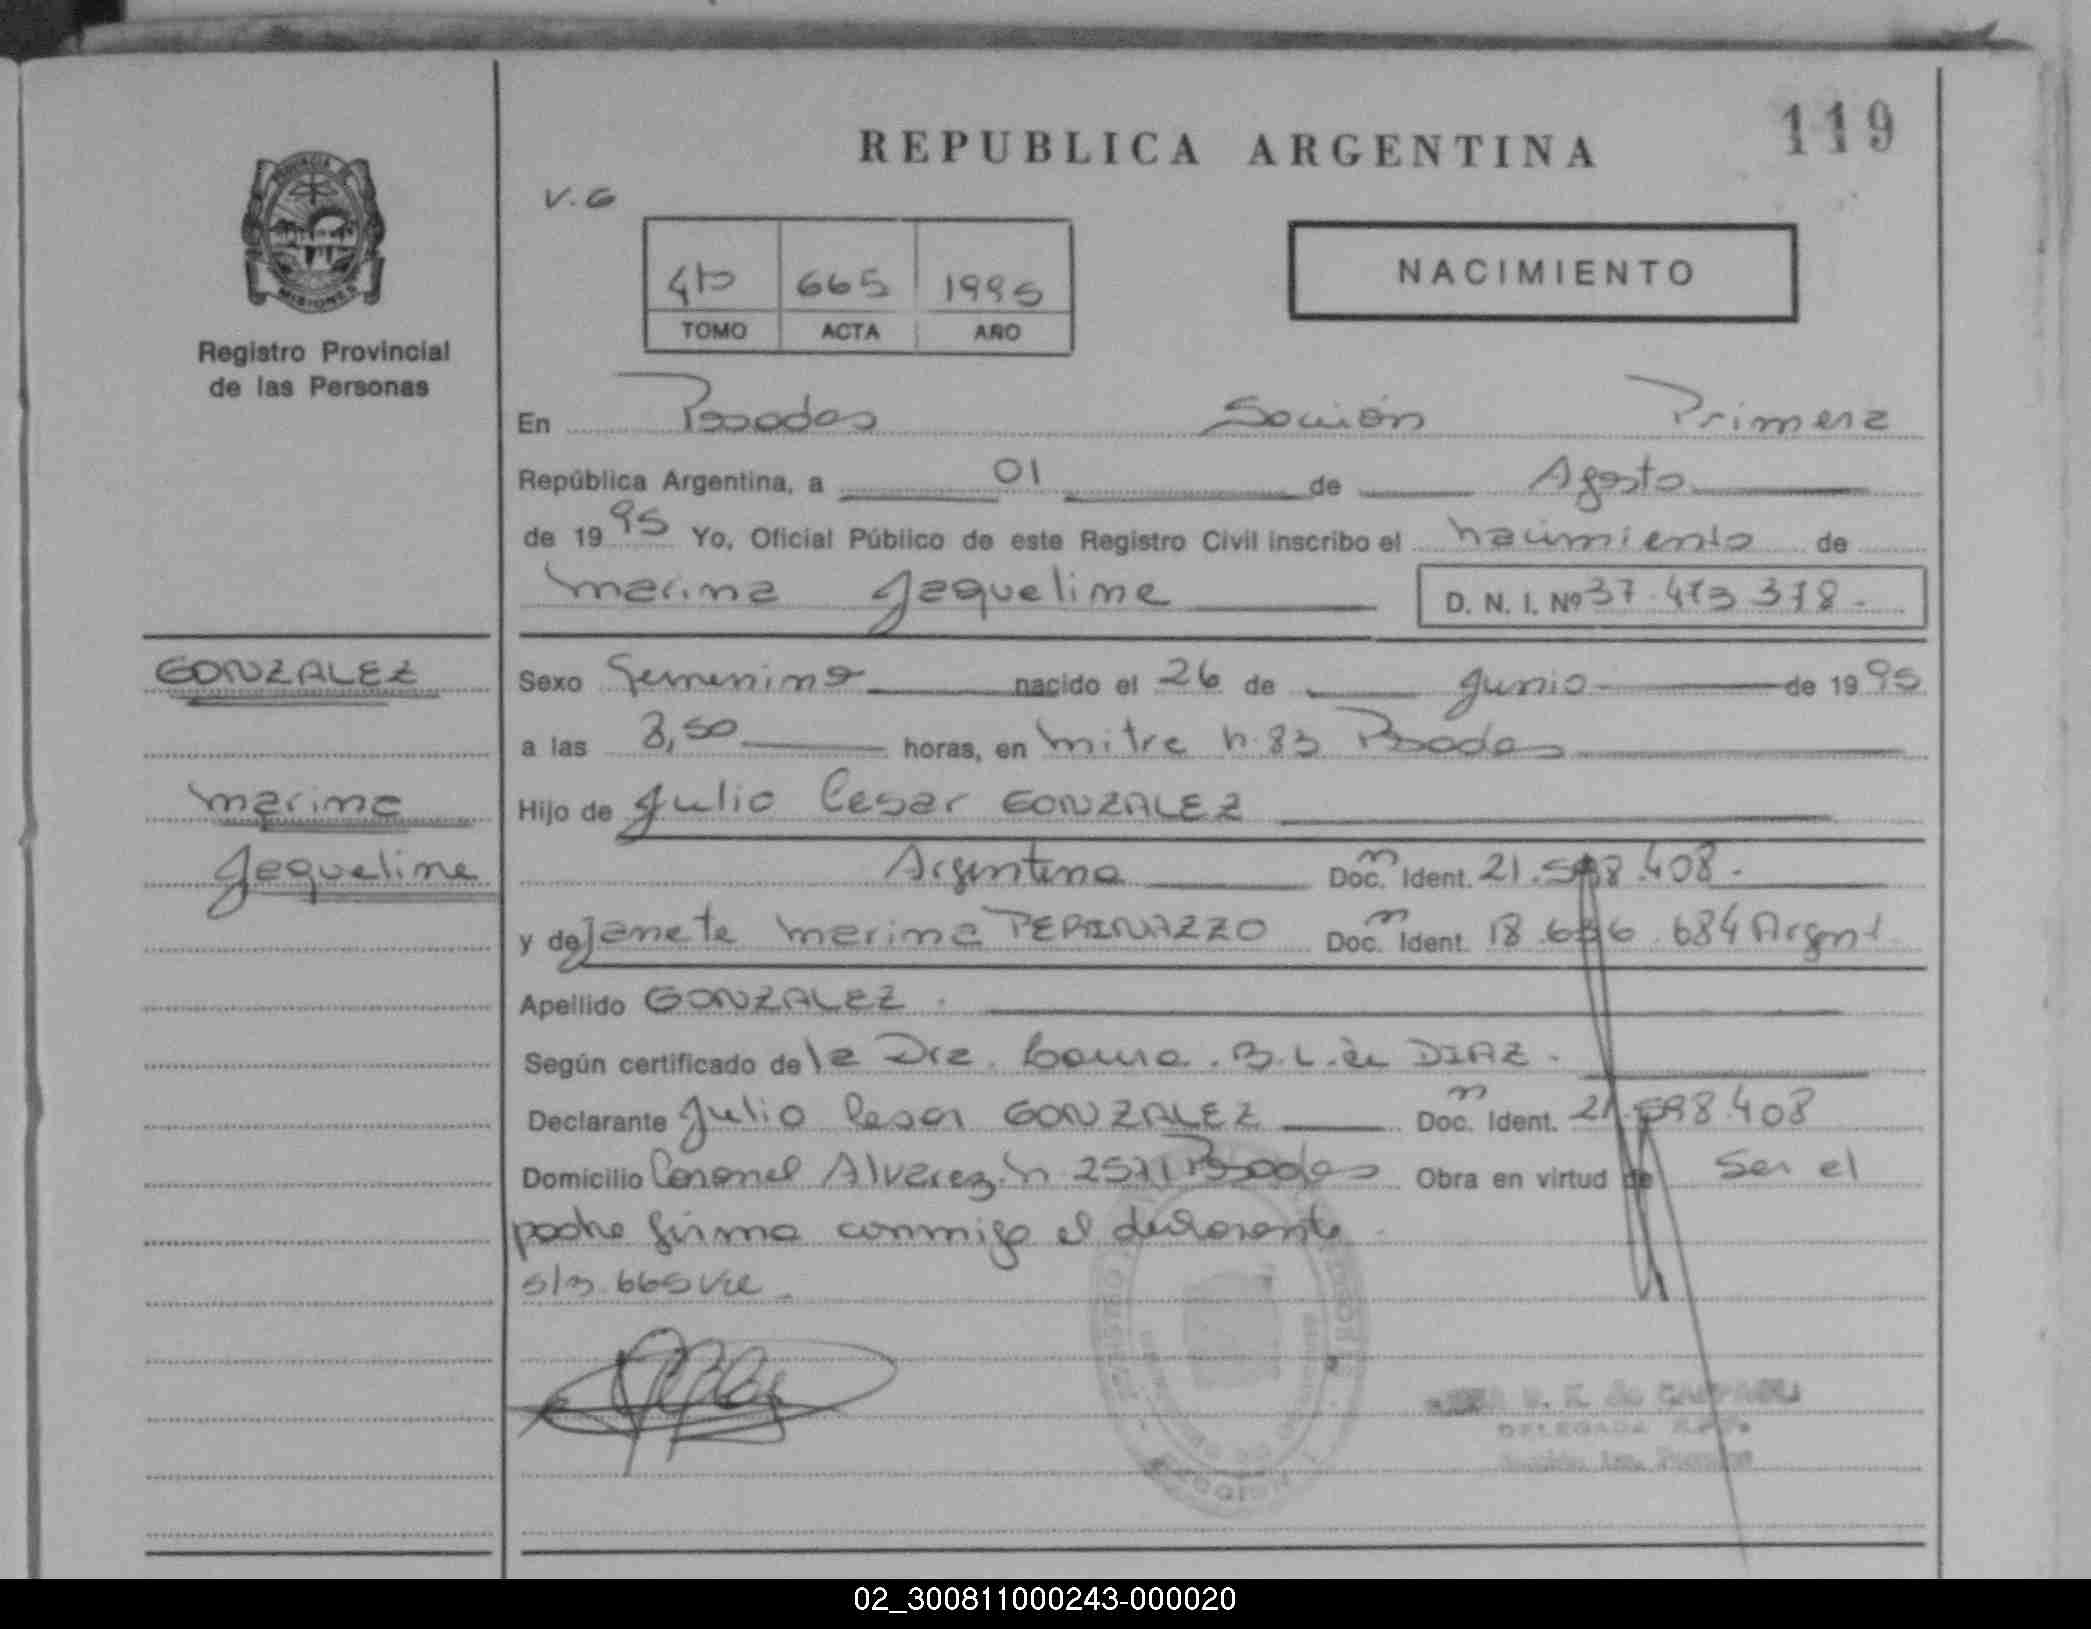 119
REPUBLICA ARGENTINA
V.G
665 1995
TOMO ACTA AÑO
NACIMIENTO
MISIONES
Registro Provincial
de las Personas
En Posadas Sección Primera
República Argentina, a 01 de Agosto
de 1995 Yo, Oficial Público de este Registro Civil inscribo el nacimiento de
Marina Jaqueline D. N. I. Nº 37.473 318.-
GONZALEZ
Marina
Jaqueline
Sexo femenino nacido el 26 de Junio de 1995
a las 8,50 horas, en Mitre n. 83 Posadas
Hijo de Julio Cesar GONZALEZ
Argentina Doc. Ident. 21.598.408.-
y de Janete Marina Doc. Ident. 18.686.684 Argent
Apellido GONZALEZ.
Según certificado de la Dra. B. L. de DIAZ.
Declarante Julio Cesar GONZALEZ Doc. Ident. 21.598.408
Domicilio Coronel Alvarez n 2571 Posadas Obra en virtud de Ser el
padre firma conmigo el declarante.
s/r. 665 Vale.
DELEGADA
02_300811000243-000020